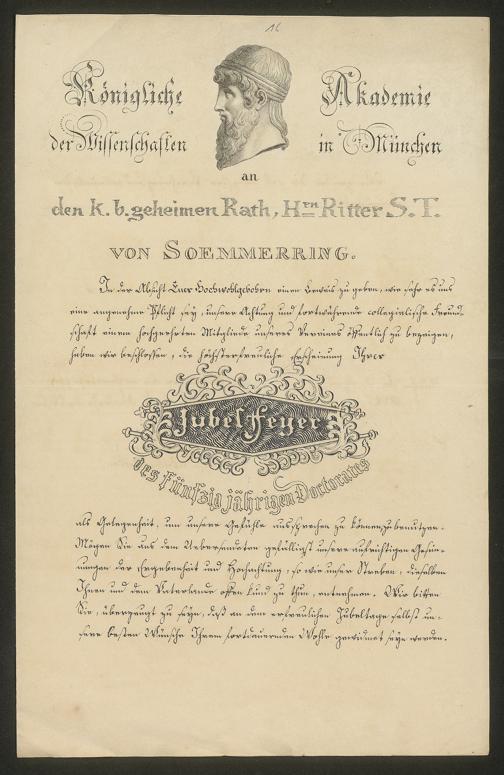 16
Königliche Akademie
der Wissenschaften in München
an
den k. b. geheimen Rath, Hrn Ritter S. T.
VON SOEMMERRING.
In der Absicht Euer Hochwohlgeboren einen Beweis zu geben, wie sehr es uns
eine angenehme Pflicht sey, unsere Achtung und fortwährende collegialische Freund-
schaft einem hochgeehrten Mitgliede unseres Vereines öffentlich zu bezeigen,
haben wir beschlossen, die höchsterfreuliche Erscheinung Ihrer
Jubelfeyer
des fünfzig jährigen Doctorates
als Gelegenheit, um unsere Gefühle aussprechen zu können, zu benutzen.
Mögen Sie aus dem gefälligst unsere aufrichtigen Gesin-
nungen der Ergebenheit und Hochachtung, so wie unser Streben, dieselben
Ihnen und dem Vaterlande offen kund zu thun, entnehmen. Wir bitten
Sie, überzeugt zu seyn, daß an dem erfreulichen Jubeltage selbst un-
sere besten Wünsche Ihrem fortdauernden Wohle gewidmet seyn werden.